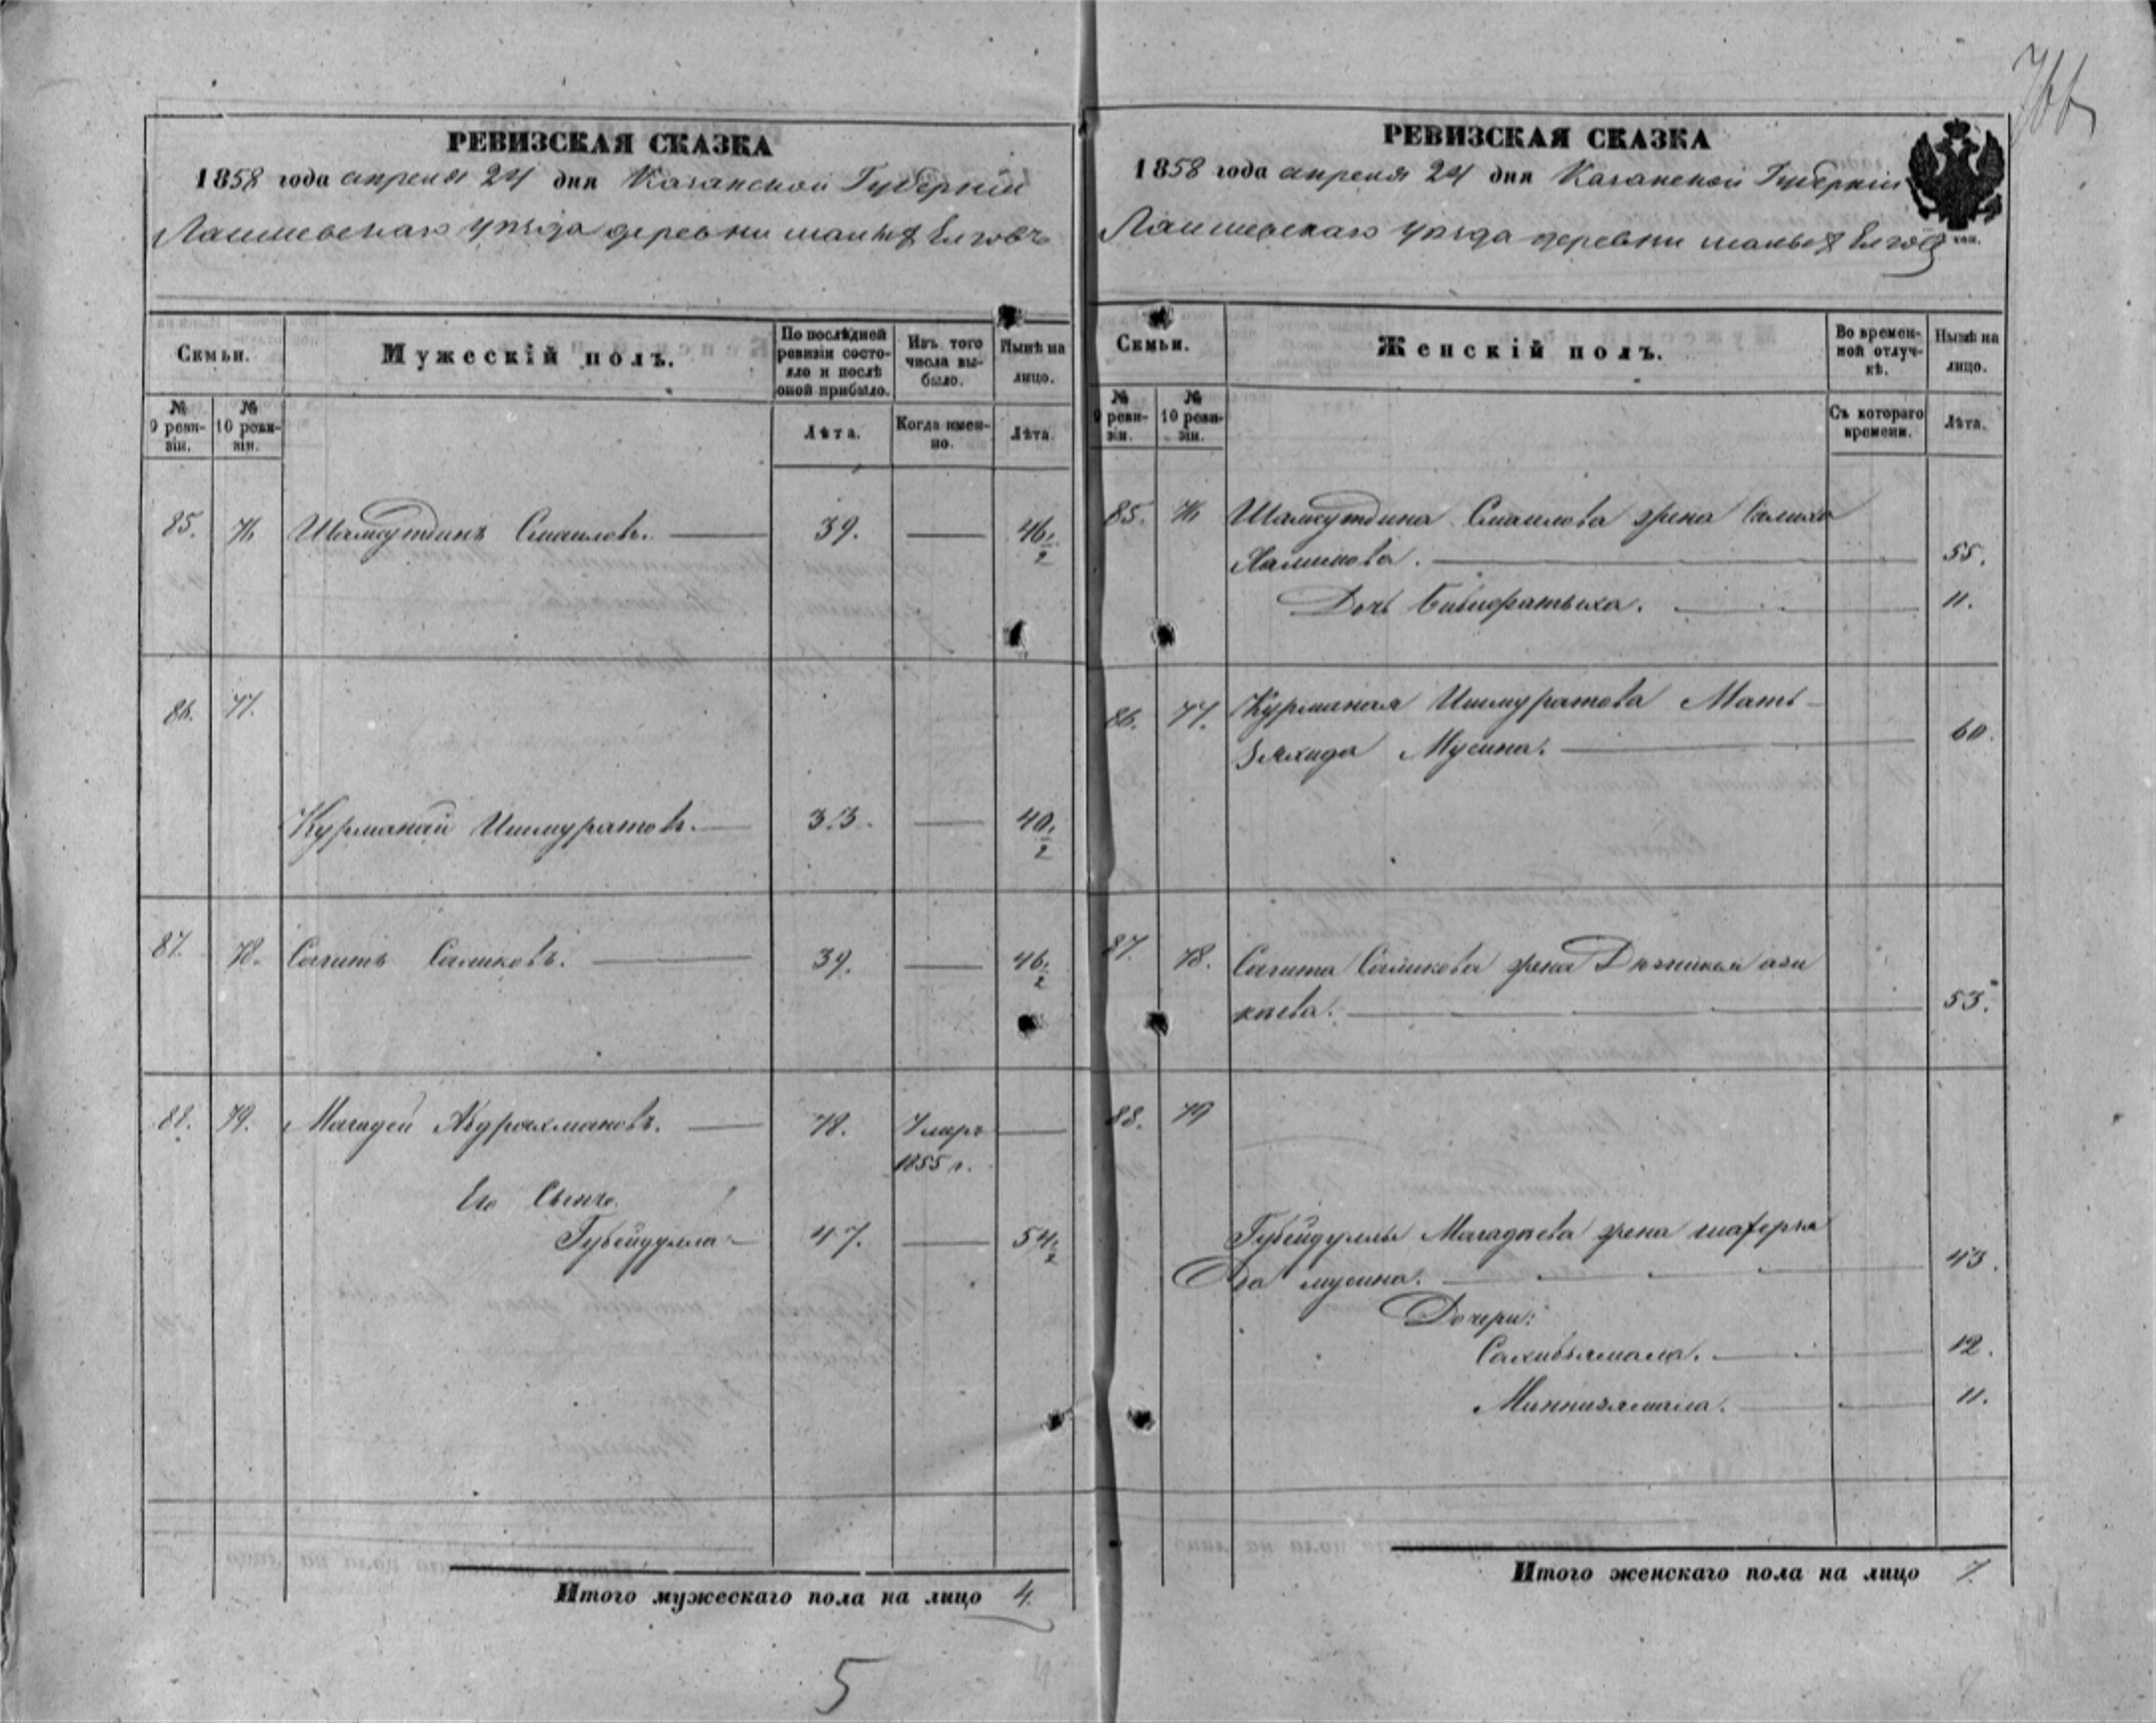 766
РЕВИЗСКАЯ СКАЗКА
1858 года апреля 24 дня Казанской Губернии
Лаишевскаго уѣзда деревни
Семьи.
Мужескій полъ.
По послѣдней ревизіи состояло и послѣ оной прибыло.
Изъ того числа выбыло.
Нынѣ на лицо.
№ 9 ревизіи.
№ 10 ревизіи.
Лѣта.
Когда именно.
Лѣта.
85. 76 Шамсутдинъ Смаиловъ. 39. — 46 1/2
86. 77.
Курманай Ишмуратовъ. 33. — 40 1/2
87. 78. Сагитъ Салиховъ. 39. — 46 1/2
88. 79. Магадей Абдрахмановъ. 78. Умеръ —
1855 г.
Его Сынъ
Губейдулла 47. — 54 1/2
Итого мужескаго пола на лицо 4.
5
РЕВИЗСКАЯ СКАЗКА
1858 года апреля 24 дня Казанской Губерніи
Лаишевскаго уѣзда деревни
коп.
Семьи.
Женскій полъ.
Во временной отлучкѣ.
Нынѣ на лицо.
№ 9 ревизіи.
№ 10 ревизіи.
Съ котораго времени.
Лѣта.
85. 76 Шамсутдина Смаилова жена Салиха
55.
Дочь 11.
86. 77. Курманая Ишмуратова Мать
Мусина. 60.
87. 78. Сагита Салихова жена
каева. 53.
88. 79
Губейдуллы Магадѣева жена
мусина. 43.
Дочери:
12.
11.
Итого женскаго пола на лицо 7.